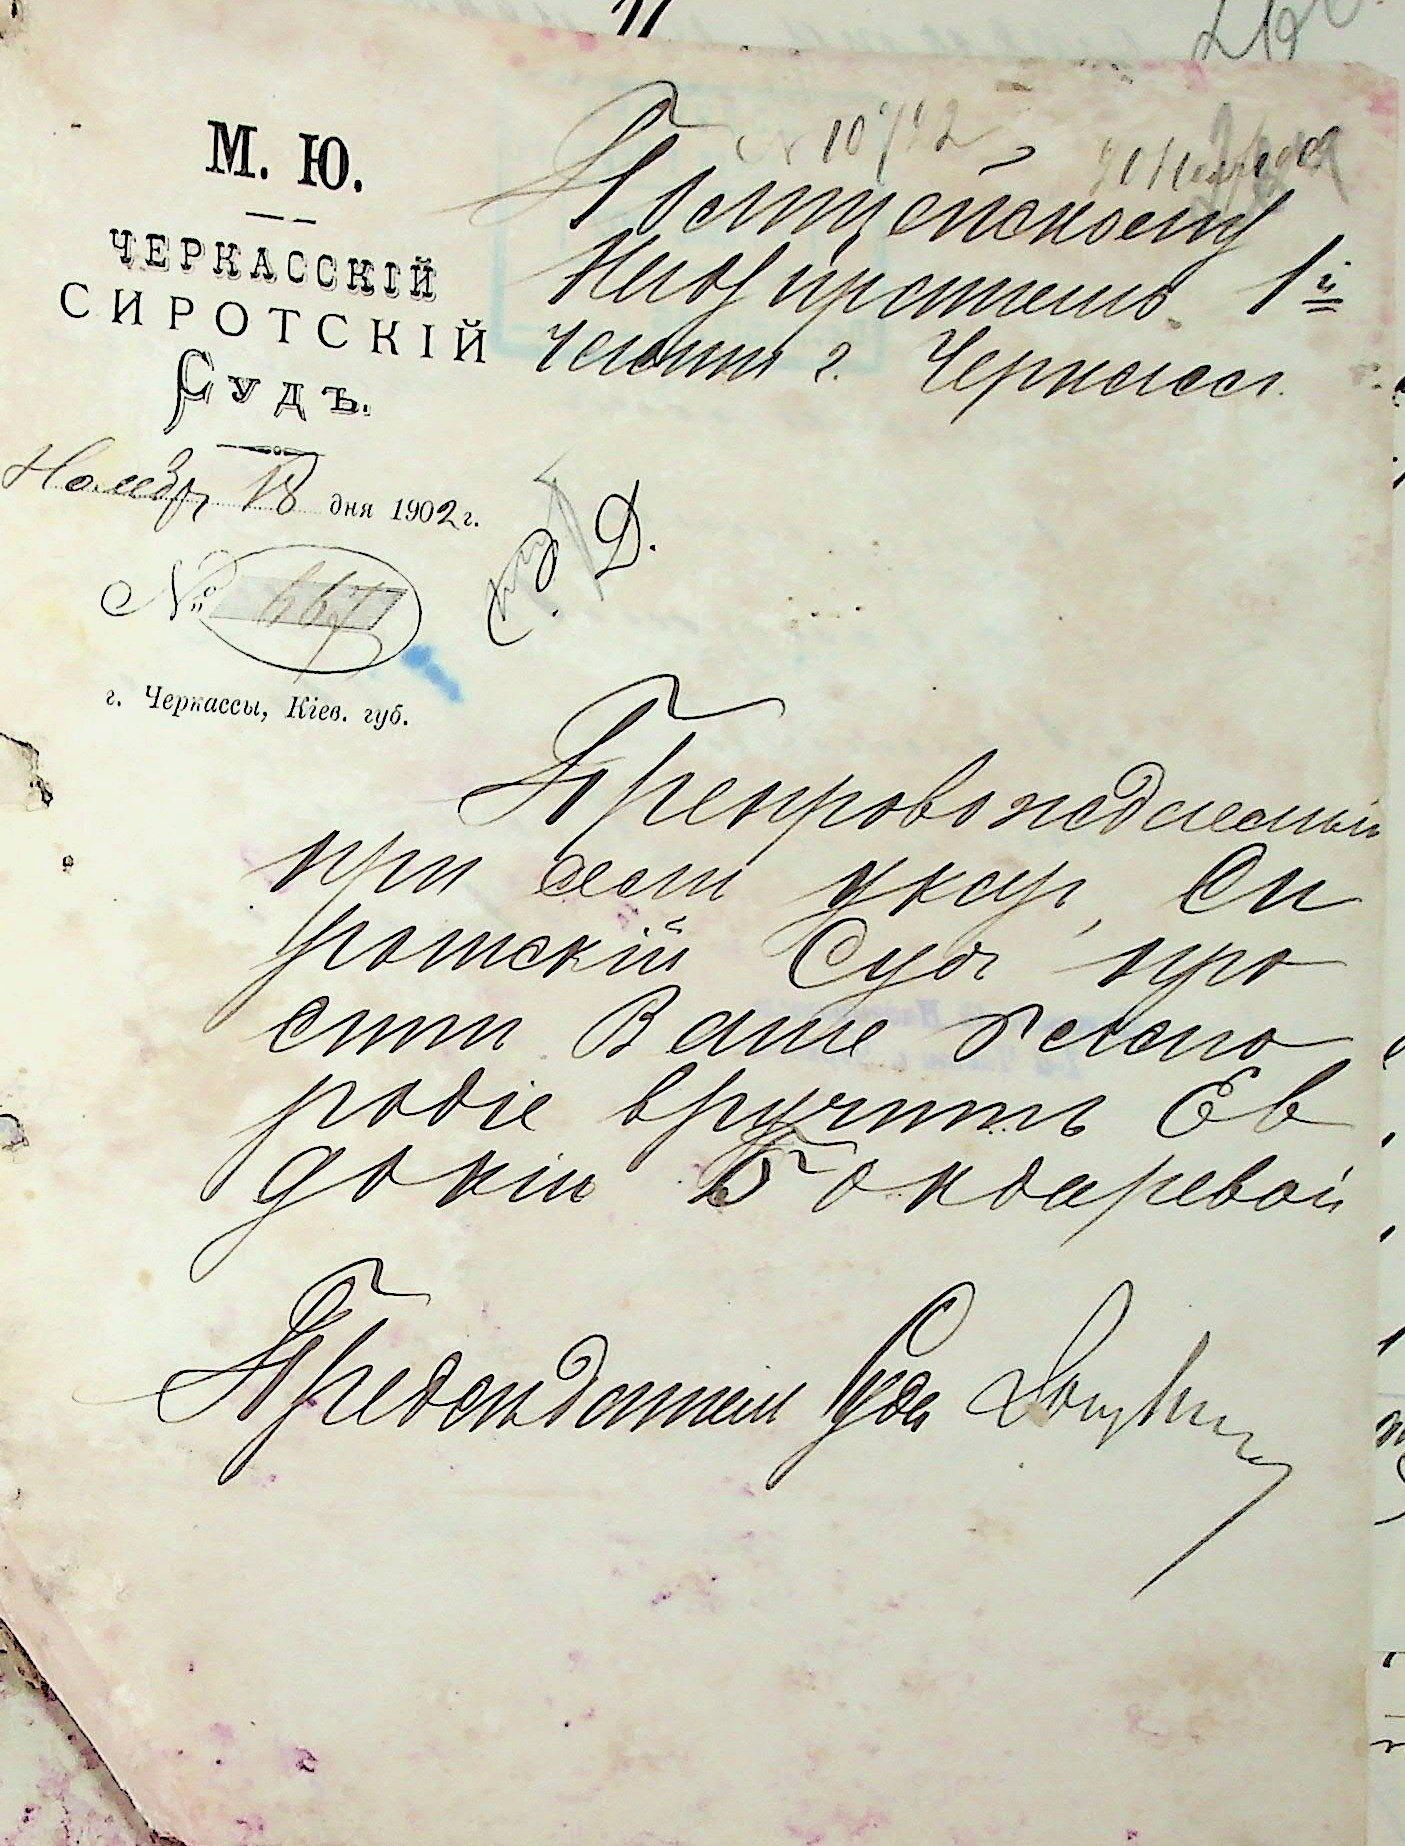 М. Ю.
ЧЕРКАССКІЙ
СИРОТСКІЙ
СУДЪ.
Ноября 18 дня 1902 г.
№ 667
г. Черкассы, Кіев. губ.
№ 10742
Полицейскому
Надзирателю 1й
части г. Черкассъ.
С. Д.
Препровождаемый
при семъ указъ, Си
ротскій Судъ про
ситъ Ваше Благо
родіе вручить Ев
докіи Бондаревой
Предсѣдатель Суда